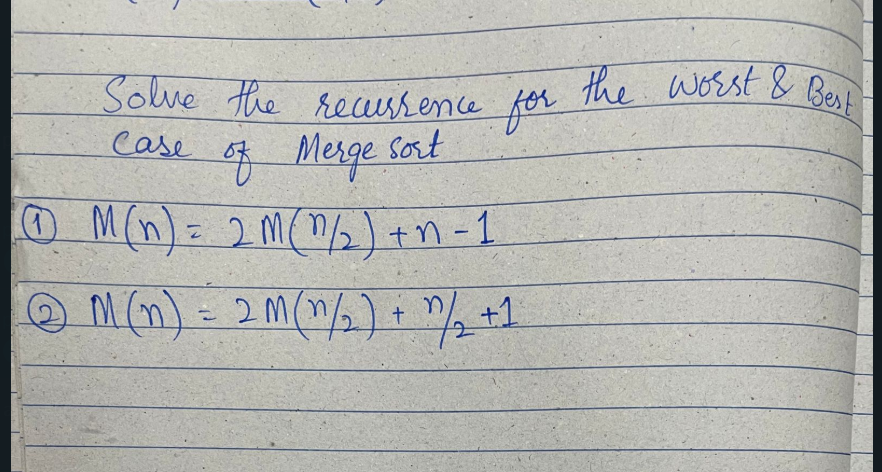 Solve the recurrence for the worst & Best
case of Merge sort
① M(n) = 2M(n/2) + n - 1
② M(n) = 2M(n/2) + n/2 + 1